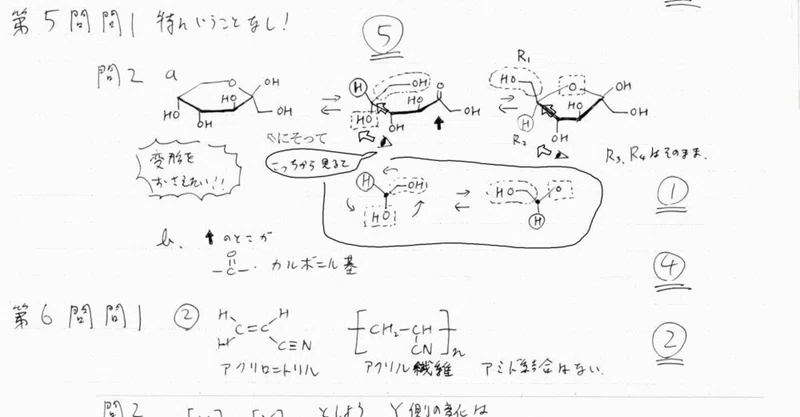 第5問 問1 特にいうことなし!
⑤
問2 a
HO OH HO O OH OH
H OH HO HO OH O OH
R₁ HO O OH HO OH OH H R₂
変形を
おさえたい!!
〃にそって
こっちから見るて
H OH HO
HO O H
R₃, R₄はそのまま.
①
b. ↑のとこが
O
-C- . カルボニル基
④
第6問 問1 ②
H H C=C H C≡N
[CH₂-CH]n CN
アクリロニトリル アクリル繊維 アミド結合はない.
②
問2